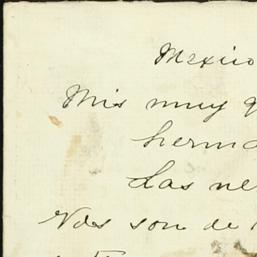 Mexico
Mis muy q
herma
Las ne
Vds son de